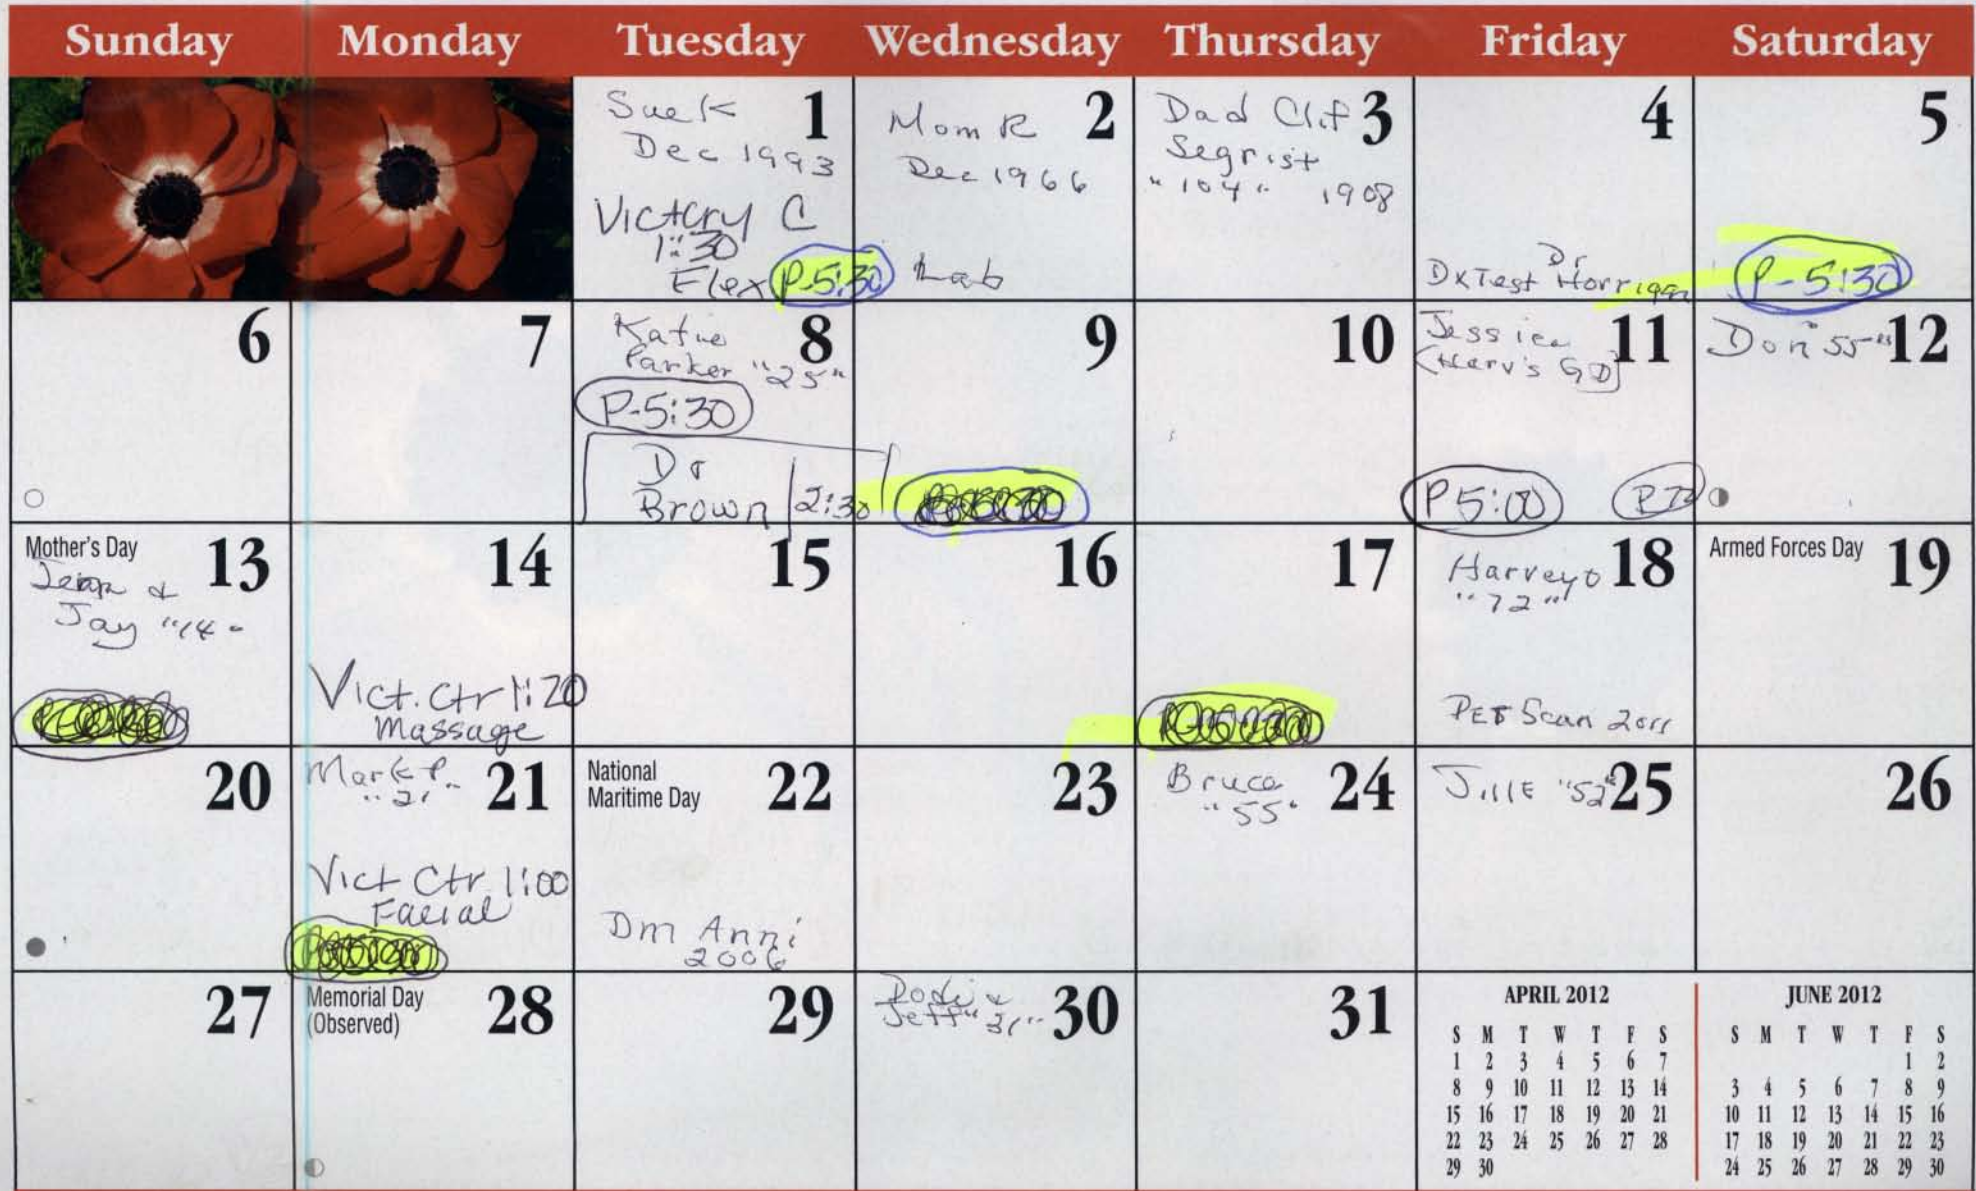 Sunday Monday Tuesday Wednesday Thursday Friday Saturday
1
Sue K
Dec 1993
Victory C
1:30
Flex P-5:30
2
Mom R
Dec 1966
Lab
3
Dad Clif
Segrist
"104" 1908
4
Dr
Dx Test Horrigan
5
P-5:30
6
7
8
Katie
Parker "25"
P-5:30
Dr
Brown 2:30
9
10
11
Jessica
(Harv's GD)
P 5:00
12
Don 55
Mother's Day 13
Jean &
Jay "14"
14
Vict. Ctr 1:20
Massage
15
16
17
18
Harvey
"72"
PET Scan 2011
Armed Forces Day 19
20
21
Mark P.
"21"
Vict Ctr. 1:00
Facial
National
Maritime Day 22
Dm Anni
2006
23
24
Bruce
"55"
25
"52"
26
27
Memorial Day
(Observed) 28
29
30
Jeff "31"
31
APRIL 2012
S M T W T F S
1 2 3 4 5 6 7
8 9 10 11 12 13 14
15 16 17 18 19 20 21
22 23 24 25 26 27 28
29 30
JUNE 2012
S M T W T F S
1 2
3 4 5 6 7 8 9
10 11 12 13 14 15 16
17 18 19 20 21 22 23
24 25 26 27 28 29 30